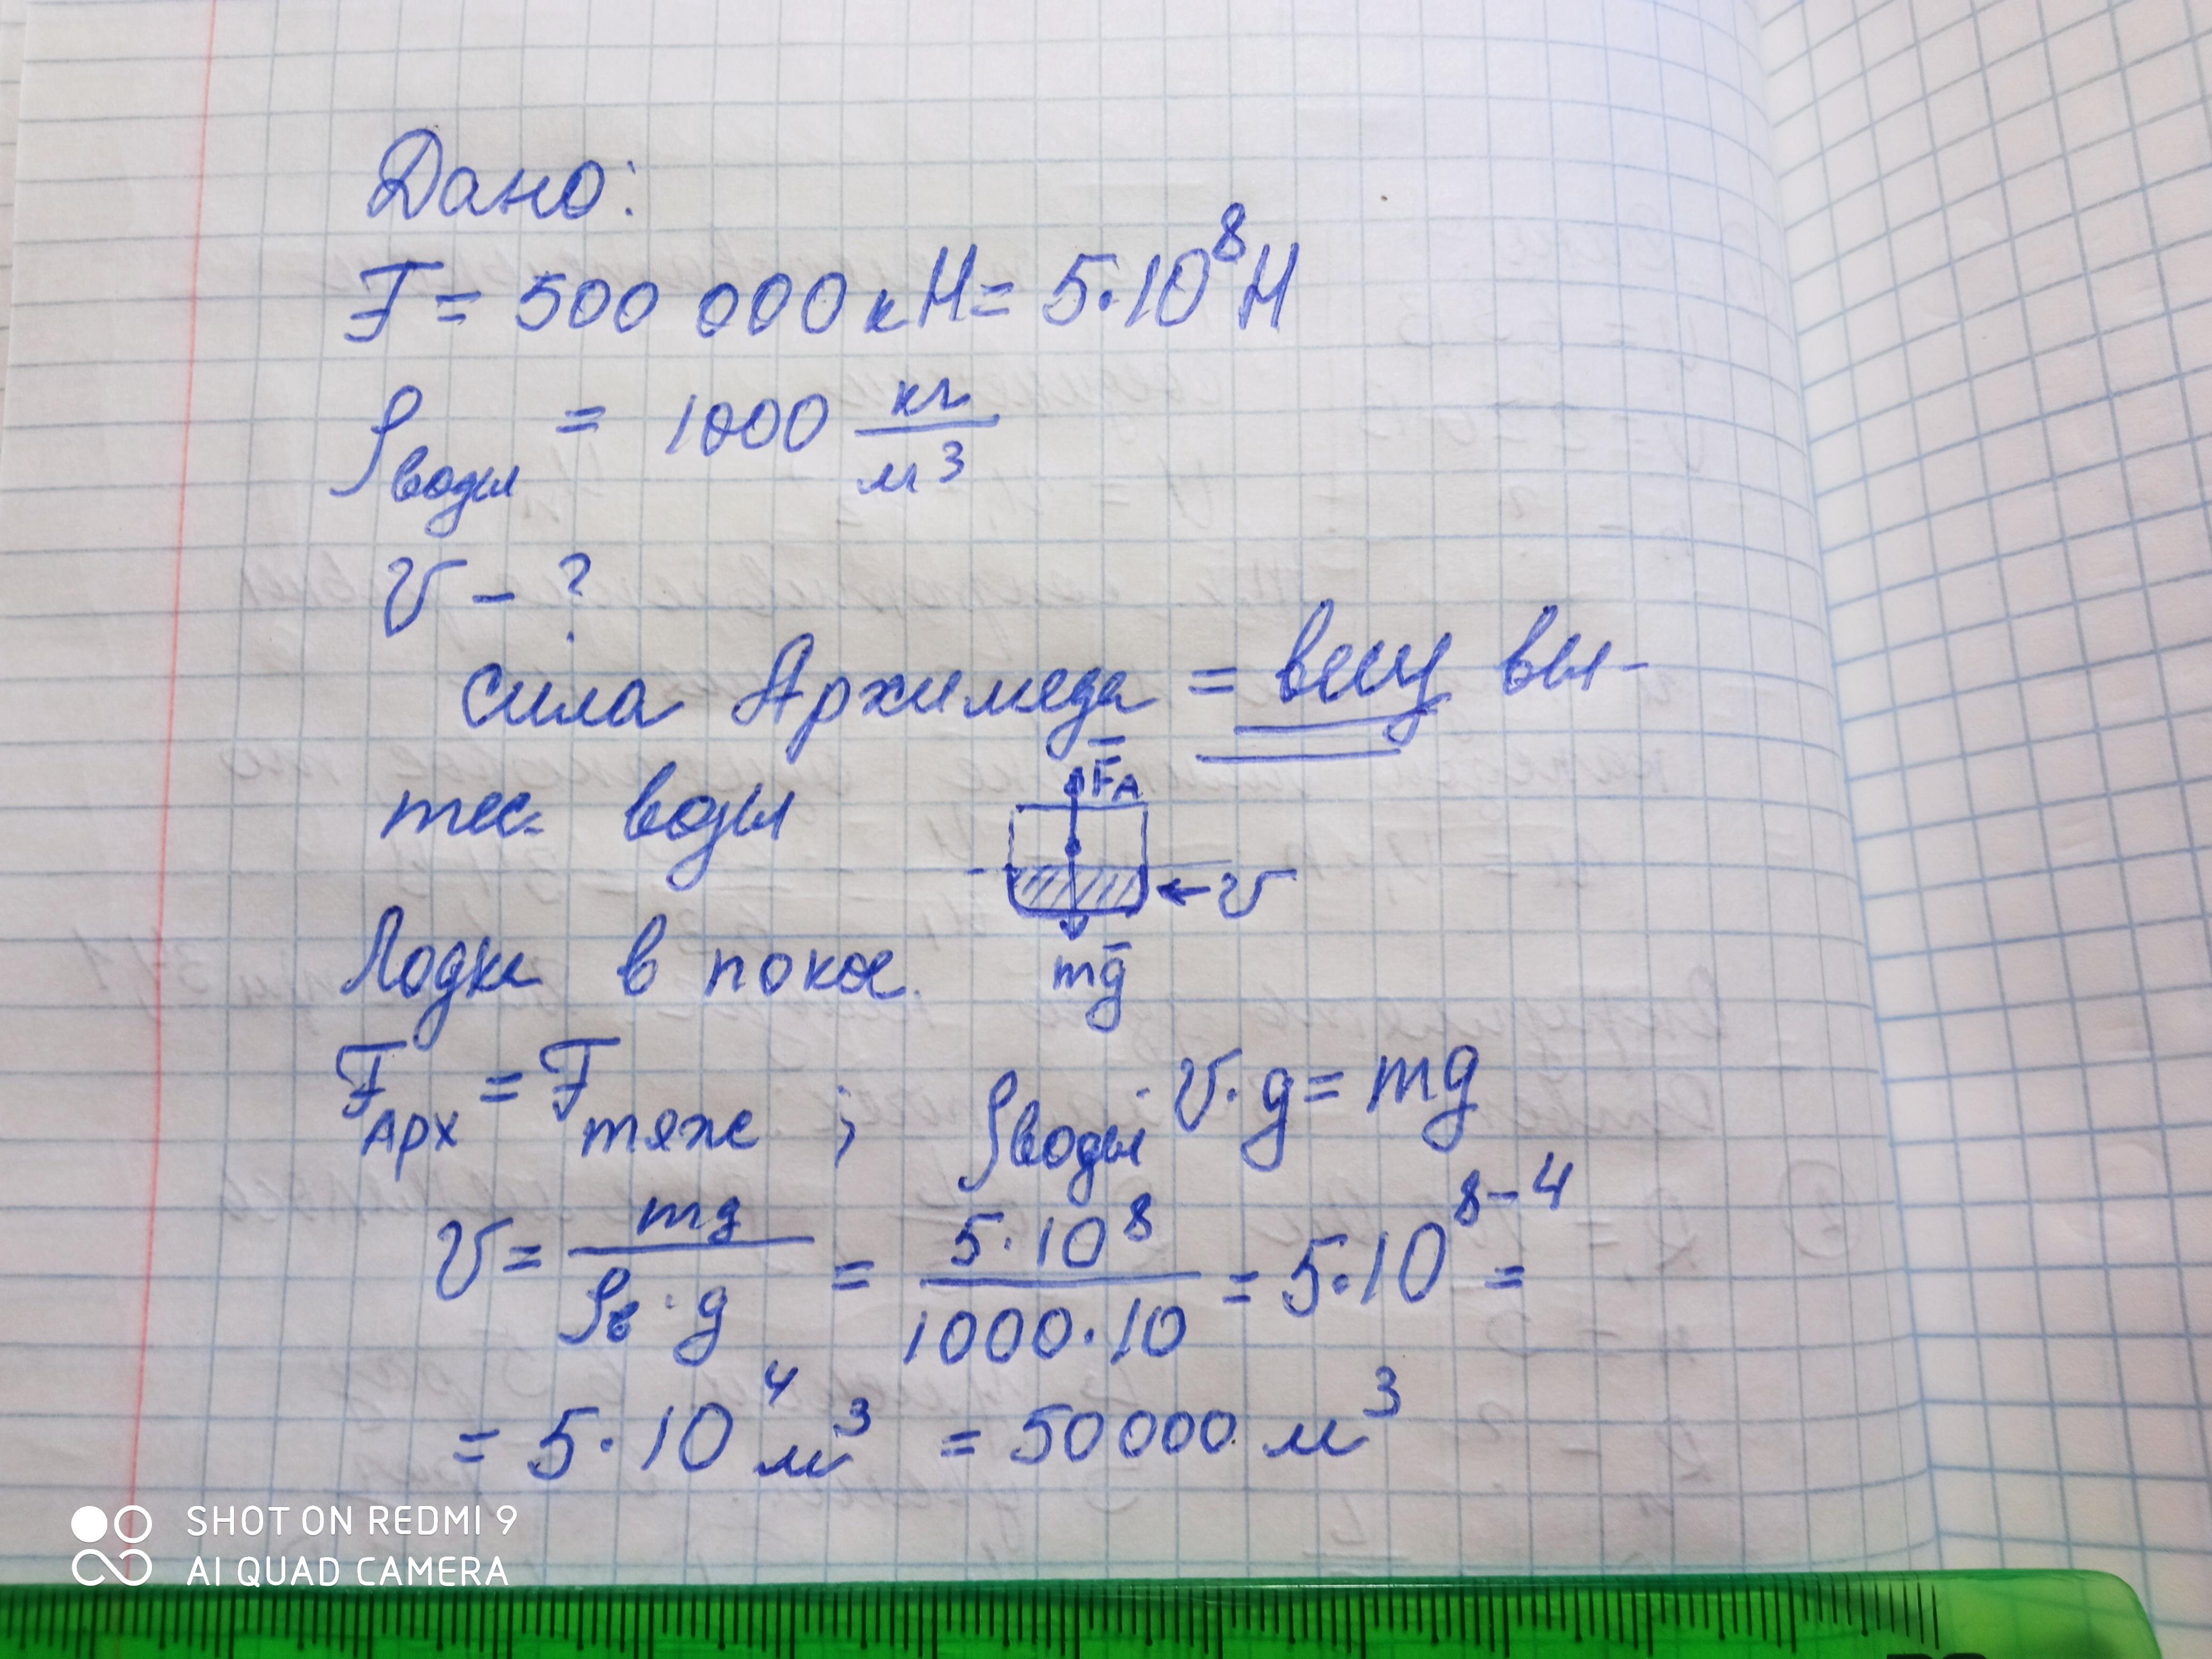 Дано:
F = 500 000 кН = 5·10⁸ Н
ρводы = 1000 кг/м³
V - ?
сила Архимеда = весу вы-
тес. воды
F̅A
← V
Лодка в покое.
mg̅
FАрх = Fтяж ; ρводы · V · g = mg
V = mg/(ρв · g) = 5·10⁸/(1000·10) = 5·10⁸⁻⁴ =
= 5·10⁴ м³ = 50000 м³
SHOT ON REDMI 9
AI QUAD CAMERA